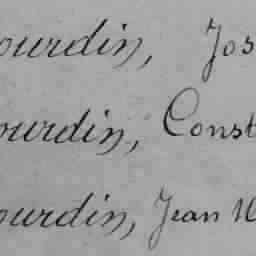 ourdin, Jos
ourdin, Const
ourdin, Jean